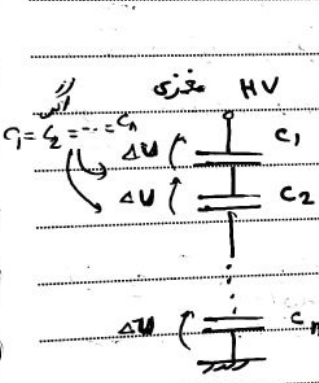 از
مغزی HV
C₁ = C₂ = ... = Cₙ
ΔU C₁
ΔU C₂
ΔU Cₙ